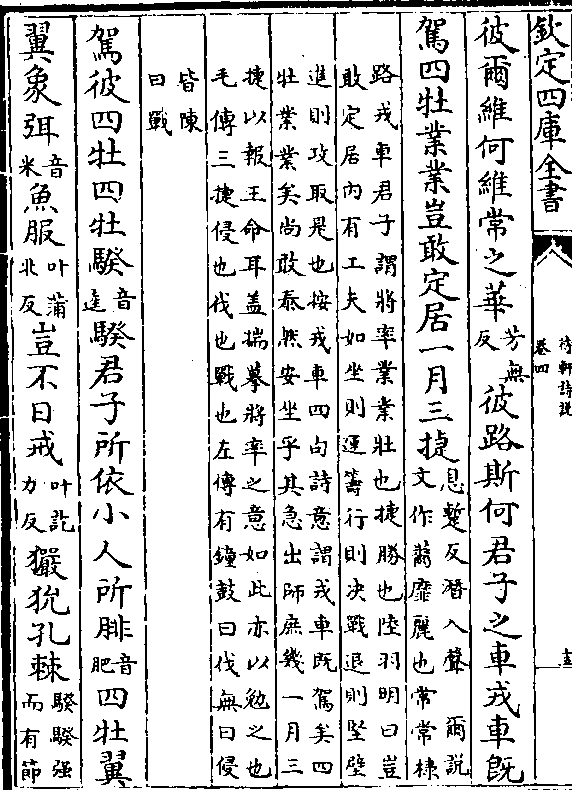 欽定四庫全書
待軒詩說
卷四
彼爾維何維常之華芳無反彼路斯何君子之車戎車既
駕四牡業業豈敢定居一月三捷息㨗反潛入聲 爾說
文作薾靡麗也常常棣
路戎車君子謂將率業業壯也捷勝也陸羽明曰豈
敢定居內有工夫如坐則運籌行則決戰退則堅壁
進則攻取是也按戎車四句詩意謂戎車既駕矣四
牡業業矣尚敢泰然安坐乎其急出師庶幾一月三
捷以報王命耳蓋揣摹將率之意如此亦以勉之也
毛傳三捷侵也伐也戰也左傳有鐘鼓曰伐無曰侵
皆陳
曰戰
駕彼四牡四牡騤音逵騤君子所依小人所腓音肥四牡翼
翼象弭音米魚服叶蒲北反豈不日戒叶訖力反玁狁孔棘騤騤强
而有節